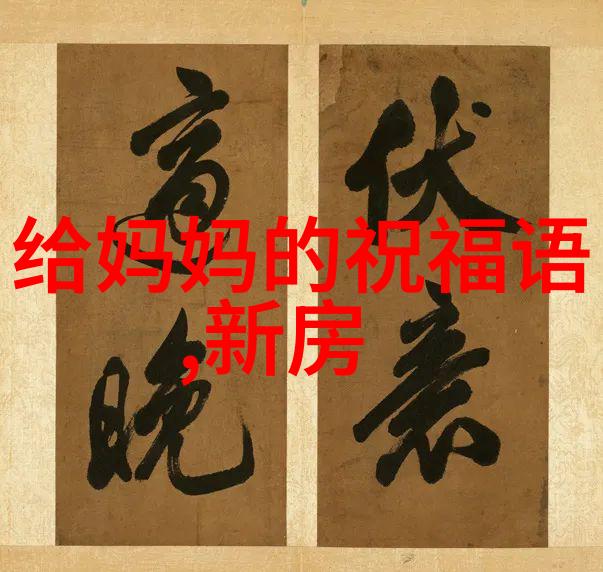 给妈妈的祝福语
,新房
伏
晚